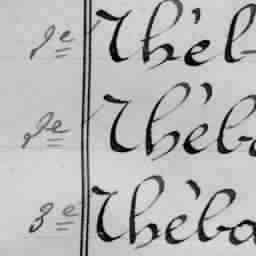 1e Thèb
2e Thèb
3e Thèba